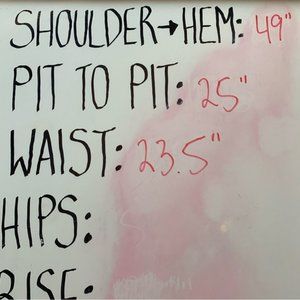 SHOULDER→HEM: 49"
PIT TO PIT: 25"
WAIST: 23.5"
HIPS:
RISE: